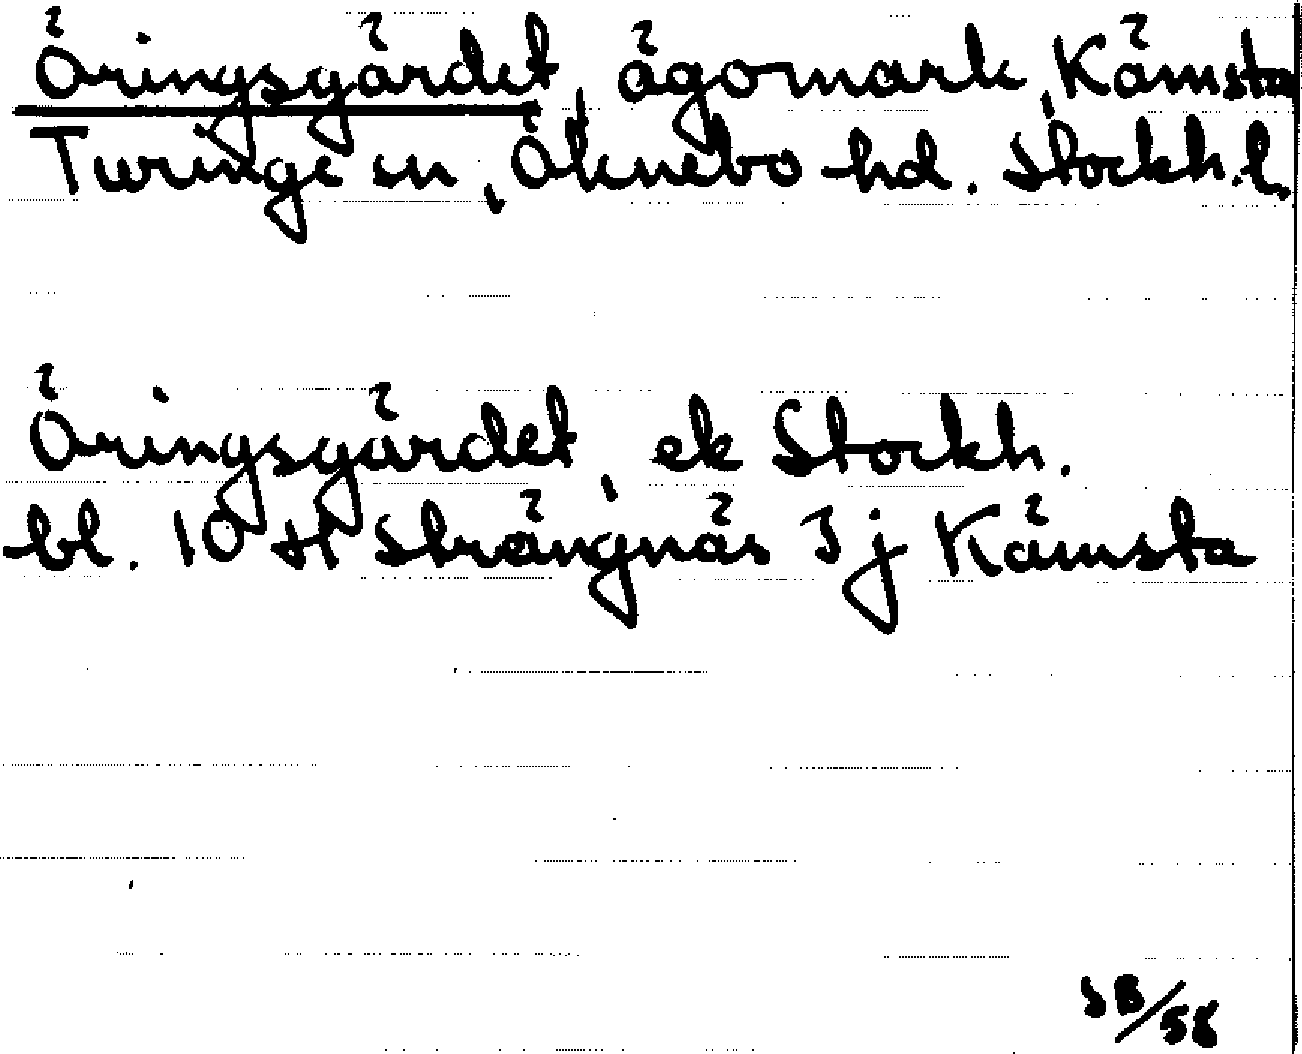 Öringsgärdet, ägomark, Kämsta
Turinge sn, Öknebo hd. Stockh.l.
Öringsgärdet, ek Stockh.
bl. 10 H Strängnäs 3j Kämsta
SB/58